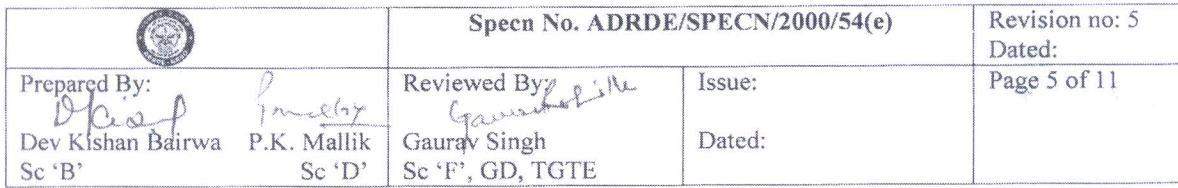 Specn No. ADRDE/SPECN/2000/54(e)
Revision no: 5
Dated:
Prepared By:
Dev Kishan Bairwa P.K. Mallik
Sc ‘B’ Sc ‘D’
Reviewed By:
Gaurav Singh
Sc ‘F’, GD, TGTE
Issue:
Dated:
Page 5 of 11